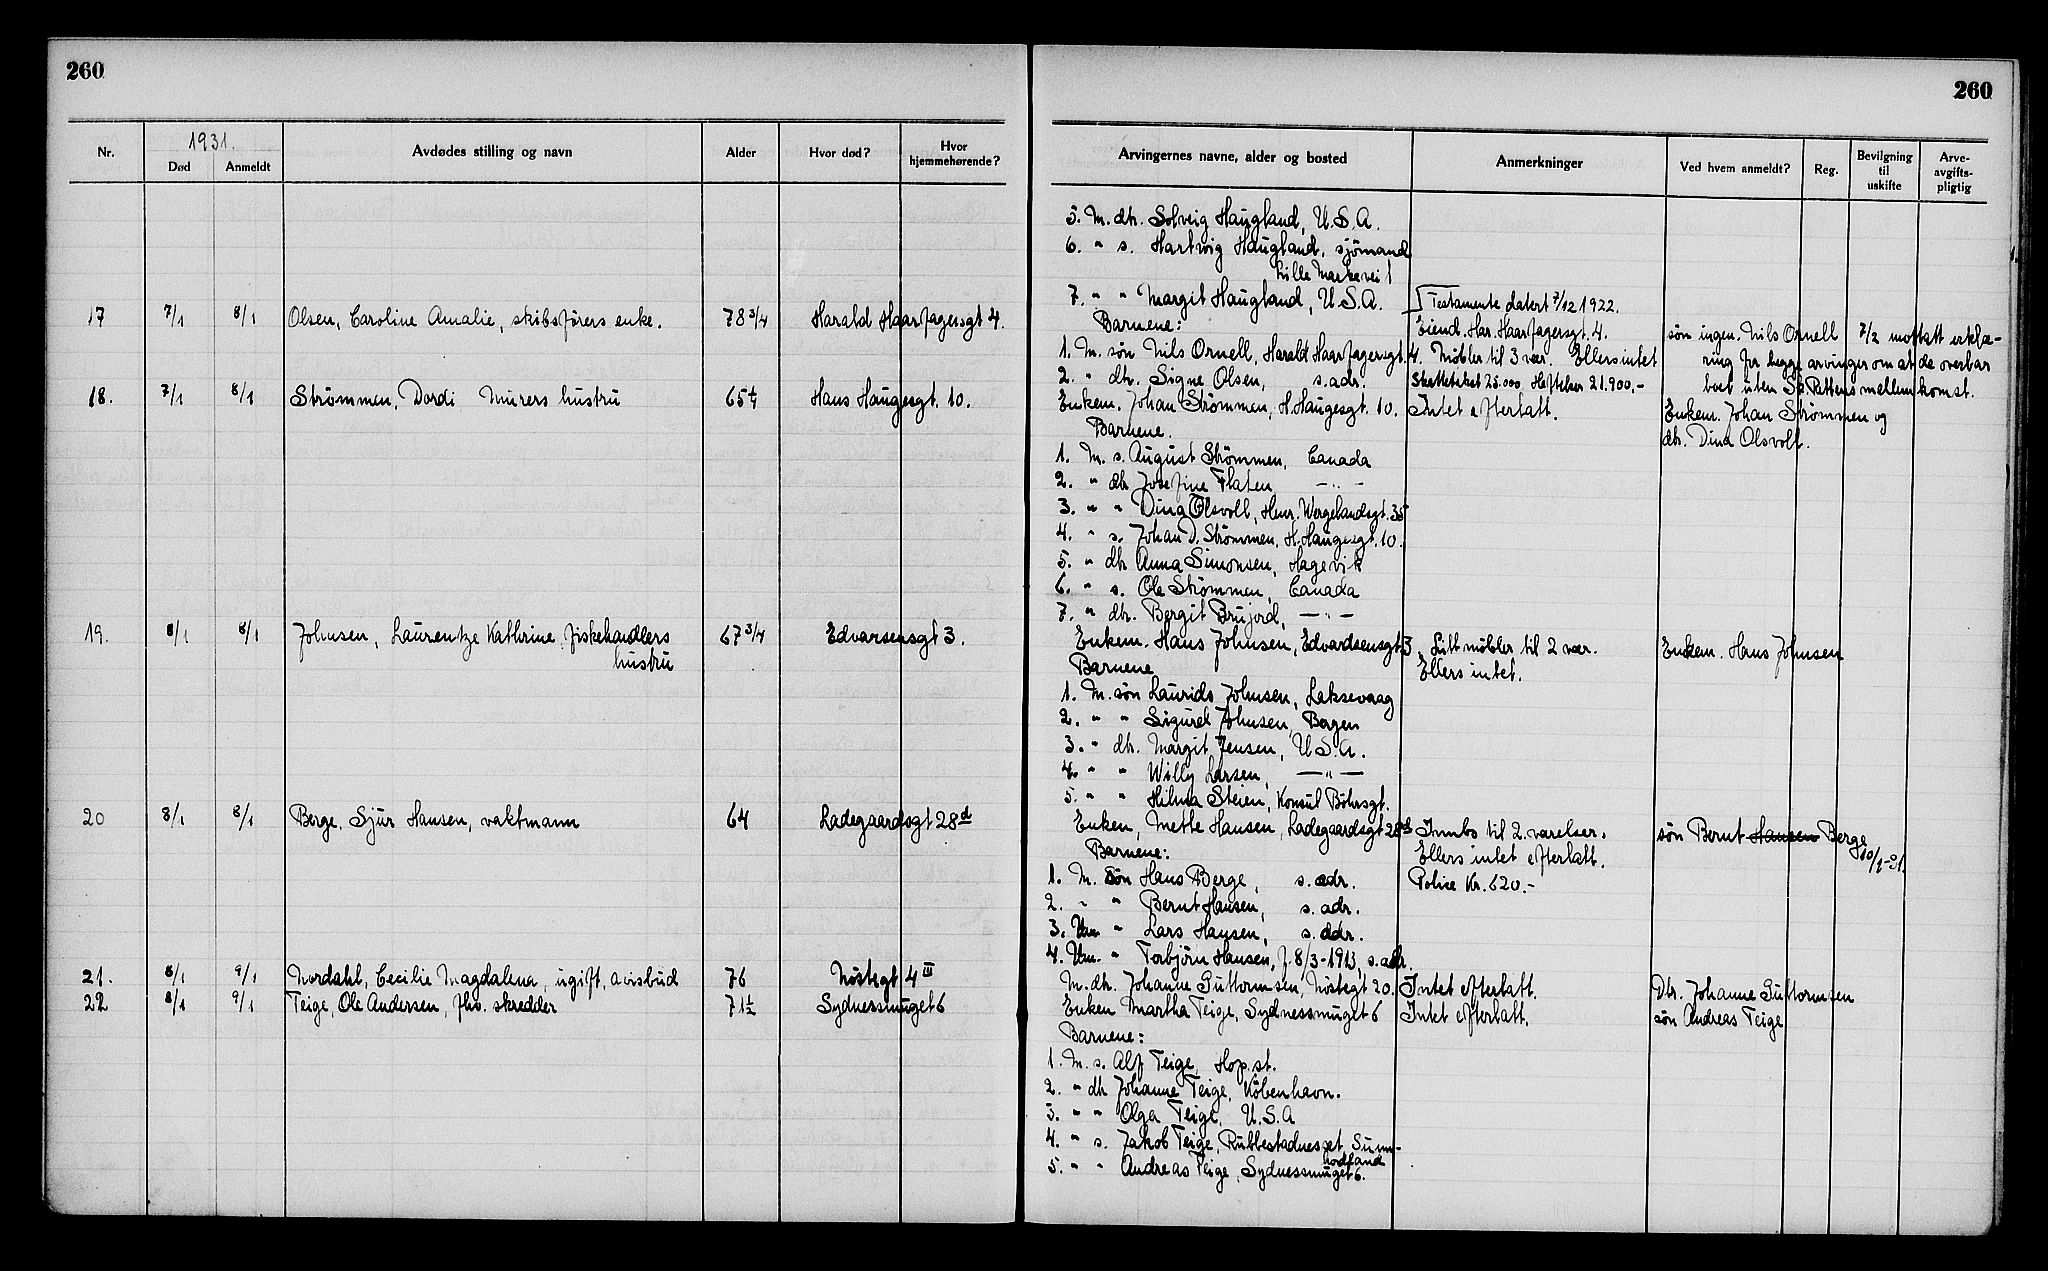 260
1931.
Nr.
Død
Anmeldt
Avdødes stilling og navn
Alder
Hvor død?
Hvor hjemmehørende?
17 7/1 8/1 Olsen, Caroline Amalie, skibsførers enke. 78 3/4 Harald Haarfagersgt 4.
18. 7/1 8/1 Strømmen, Dordi Murers hustru 65 1/4 Hans Haugesgt. 10.
19. 8/1 8/1 Johnsen, Laurentze Kathrine, fiskehandlers 67 3/4 Edvarsensgt 3.
hustru
20 8/1 8/1 Berge, Sjur Hansen, vaktmann 64 Ladegaardsgt 28d
21. 8/1 9/1 Nordahl, Cecilie Magdalena, ugift, avisbud 76 Nøstegt 4 III
22 8/1 9/1 Teige, Ole Andersen, fhv. skredder 71 1/2 Sydnessmuget 6
260
Arvingernes navne, alder og bosted
Anmerkninger
Ved hvem anmeldt?
Reg.
Bevilgning til uskifte
Arve-avgifts-pligtig
5. M. dtr. Solveig Haugland, U.S.A.
6. " s. Hartvig Haugland, sjömand
Lille Markevei 1
7. " " Margit Haugland, U.S.A. Testamente datert 7/12 1922.
Barnene: Eiend. Har. Haarfagersgt. 4. søn ingen. Nils Ornell 7/2 mottatt erklæ-
1. M. søn Nils Ornell, Harald Haarfagersgt. 4. Møbler til 3 vær. Ellers intet ring fra begge arvinger om at de overtar
2. " dtr. Signe Olsen, s. adr. Skattetakst 25.000 Heftelser 21.900.- boet uten Sk. Rettens mellemkomst.
Enkem. Johan Strømmen, H. Haugesgt. 10. Intet efterlatt. Enkem. Johan Strømmen og
Barnene. dtr. Dina Olsvoll.
1. M. s. August Strømmen, Canada
2. " dtr Josefine Flaten — " —
3. " " Dina Olsvoll, Henr. Wergelandsgt. 35
4. " s. Johan D. Strømmen, H. Haugesgt. 10.
5. " dtr Anna Simonsen, Hagevik
6. " s. Ole Strømmen, Canada
7. " dtr. Bergit Brujord, — " —
Enkem. Hans Johnsen, Edvardsensgt 3. Litt møbler til 2 vær. Enkem. Hans Johnsen
Barnene Ellers intet.
1. M. søn Laurids Johnsen, Laksevaag
2. " " Sigurd Johnsen, Bergen
3. " dtr. Margit Jensen, U.S.A.
4. " " Willy Larsen, — " —
5. " " Hilma Steien, Konsul Böhrsgt.
Enken, Mette Hansen, Ladegaardsgt 28d Innbo til 2 værelser. søn Bernt Hansen Berge
Barnene: Ellers intet efterlatt. 10/1-31.
1. M. søn Hans Berge, s. adr. Police Kr. 620.-
2. " " Bernt Hansen, s. adr.
3. Um. " Lars Hansen, s. adr.
4. Um. " Torbjørn Hansen, f. 8/3-1913, s. adr.
M. dtr. Johanne Guttormsen, Nöstegt 20. Intet efterlatt. Dtr. Johanne Guttormsen
Enken Martha Teige, Sydnessmuget 6 Intet efterlatt. søn Andreas Teige
Barnene:
1. M. s. Alf Teige, Hop st.
2. " dtr Johanne Teige, København.
3. " " Olga Teige, U.S.A
4. " s. Jakob Teige, Rubbestadnesset, Sunn-
hordland
5. " " Andreas Teige, Sydnessmuget 6.